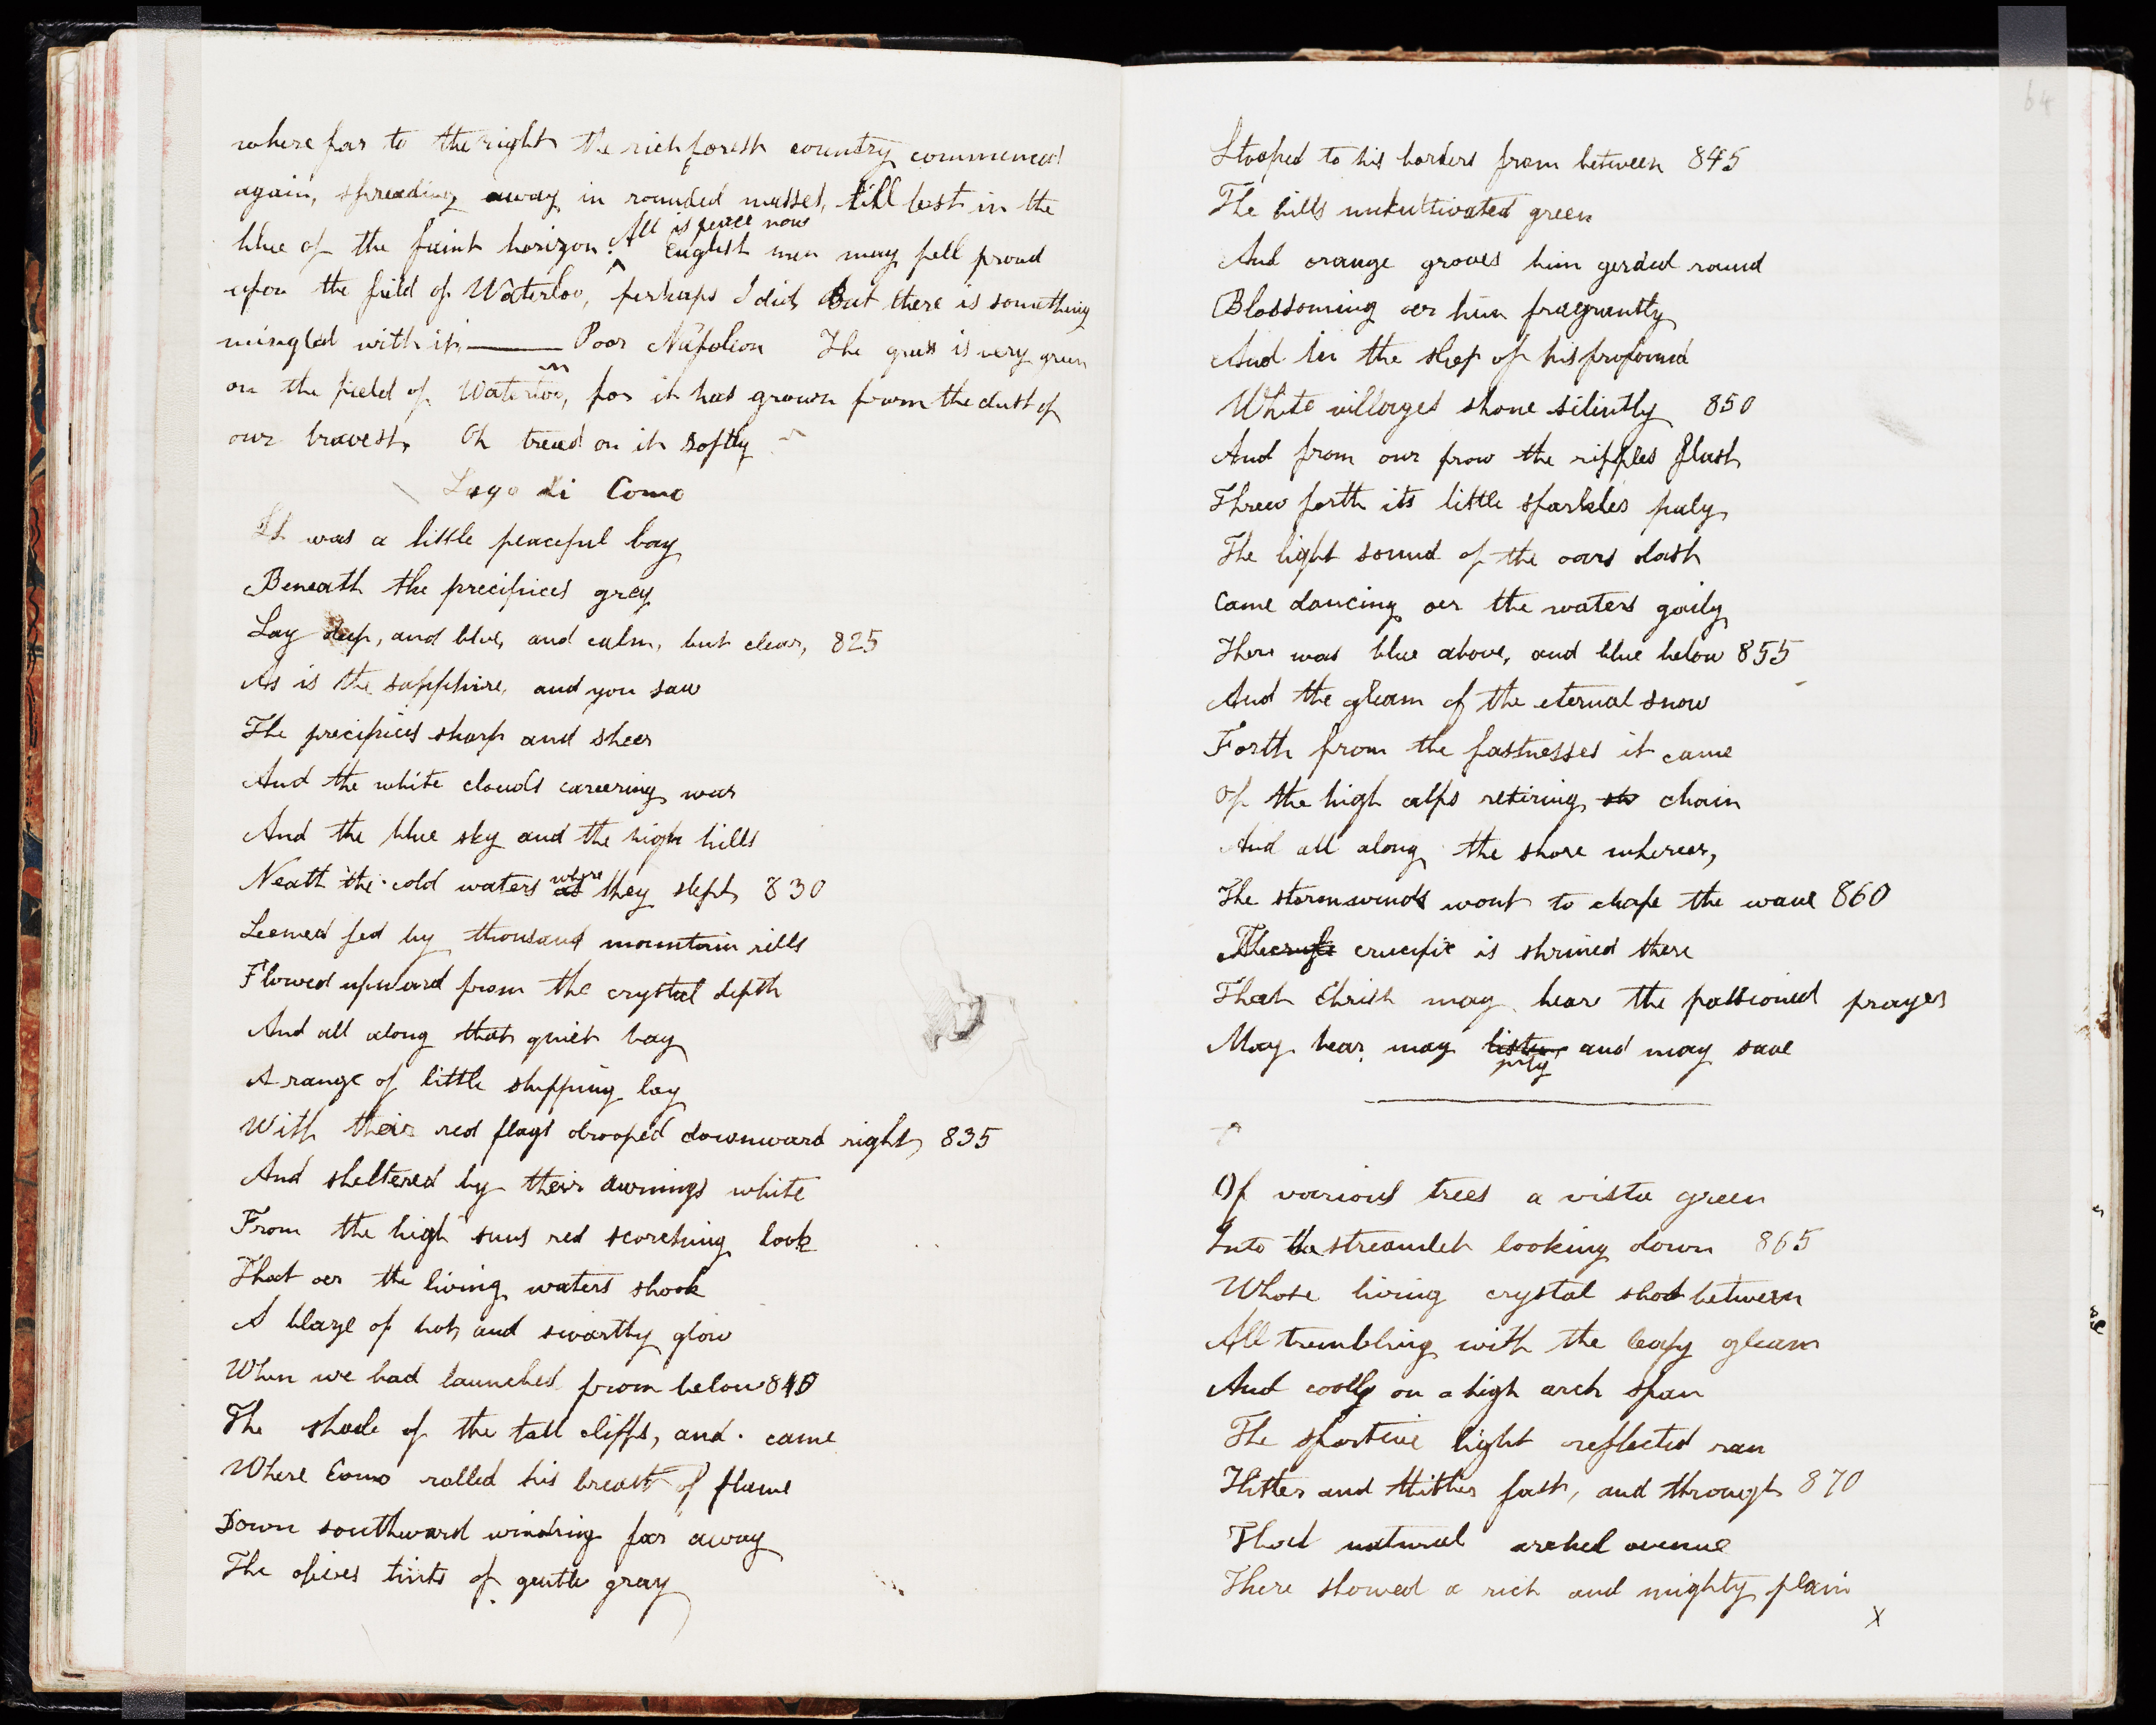 where far to the right the rich forest country commenced
again, spreading away in rounded masses, till lost in the
blue of the faint horizon. All is peace now English men may fell proud
upon the field of Waterloo, perhaps I did, But there is something
mingled with it, —— Poor Napolion The grass is very green
on the field of Waterloo, for it has grown from the dust of
our bravest. Oh tread on it softly
Lago di Como
It was a little peaceful bay
Beneath the precipices grey
Lay deep, and blue, and calm, but clear, 825
As is the sapphire, and you saw
The precipices sharp and sheer
And the white clouds careering war
And the blue sky and the high hills
Neath the cold waters as where they slept 830
Seemed fed by thousand mountain rills
Flowed upward from the crystal depth
And all along that quiet bay
A range of little shipping lay
With their red flags drooped downward right, 835
And sheltered by their awnings white
From the high suns red scorching look
That oer the living waters shook
A blaze of hot, and swarthy glow
When we had launched from below 840
The shade of the tall cliffs, and came
Where Como rolled his breast of flame
Down southward winding far away
The olives tints of gentle gray
64
Stooped to his borders from between 845
The hills unkultivated green
And orange groves him gerded round
Blossoming oer him fragrantly
And in the sleep of his profound
White villages shone silintly 850
And from our prow the ripples flash
Threw forth its little sparkles paly
The light sound of the oars dash
Came dancing oer the waters gaily
There was blue above, and blue below 855
And the gleam of the eternal snow
Forth from the fastnesses it came
Of the high alps retiring chain
And all along the shore wherever,
The stormwinds wont to chafe the wave 860
The crucifix is shrined there
That Christ may hear the passioned prayer
May hear may listen pity and may save
Of various trees a vista green
Into the streamlet looking down 865
Whose living crystal shot between
All trembling with the leafy gleam
And cooly on a high arch span
The sportive light reflected ran
Hither and thither fast, and through 870
That natural arched avenue
There showed a rich and mighty plain
X